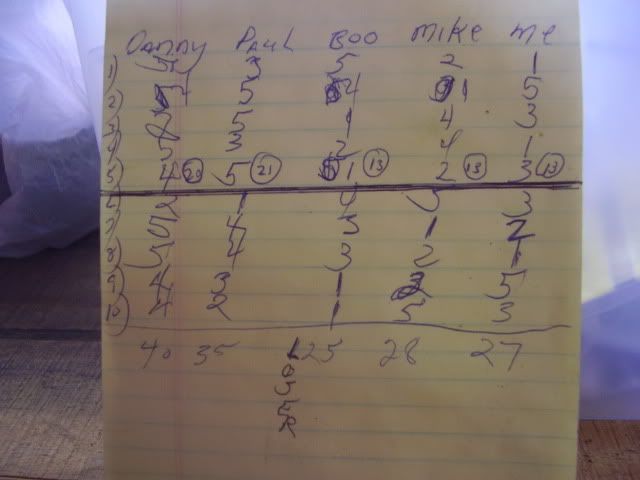 Danny Paul Boo Mike me
1) 3 5 2 1
2) 5 4 1 5
3) 5 1 4 3
4) 5 3 2 4 1
5) 4 20 5 21 1 13 2 13 3 13
6) 2 1 4 5 3
7) 5 4 3 1 2
8) 5 4 3 2 1
9) 4 3 1 2 5
10) 4 2 1 5 3
40 35 25 28 27
L
O
S
E
R